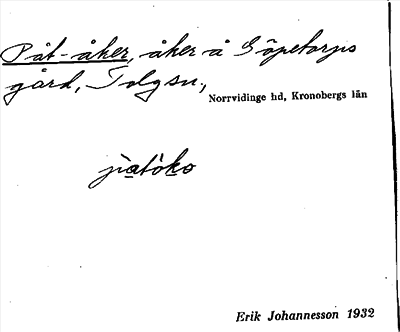 Påt-åker, åker å Göpetorps
gård, Tolgsn.,
Norrvidinge hd, Kronobergs län
Erik Johannesson 1932